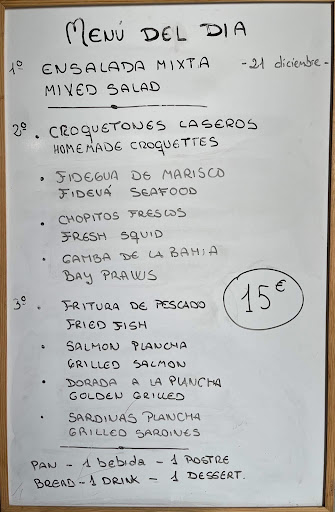 MENÚ DEL DIA
1º ENSALADA MIXTA -21 diciembre-
MIXED SALAD
2º . CROQUETONES CASEROS
HOMEMADE CROQUETTES
• FIDEGUA DE MARISCO
FIDEVÁ SEAFOOD
• CHOPITOS FRESCOS
FRESH SQUID
• GAMBA DE LA BAHIA
BAY PRAWS
15€
3º • FRITURA DE PESCADO
FRIED FISH
• SALMON PLANCHA
GRILLED SALMON
• DORADA A LA PLANCHA
GOLDEN GRILLED
• SARDINAS PLANCHA
GRILLED SARDINES
PAN - 1 bebida - 1 POSTRE
BREAD - 1 DRINK - 1 DESSERT.